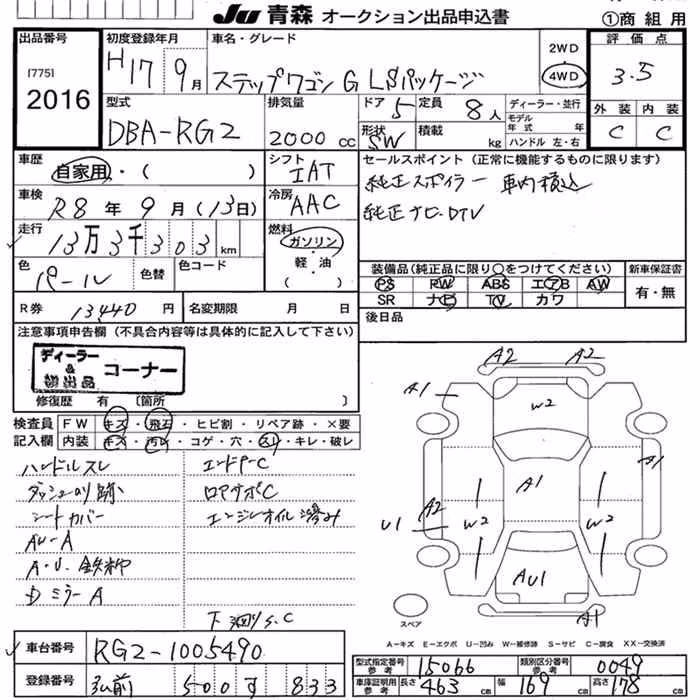 JU 青森 オークション出品申込書
①商組用
出品番号
[775]
2016
初度登録年月
H17 9月
車名・グレード
ステップワゴン G LSパッケージ
2WD
4WD
評価点
3.5
外装 内装
C C
型式
DBA-RG2
排気量
2000 cc
ドア 5
定員 8人
形状 SW
積載 kg
ディーラー・並行
モデル年式 年
ハンドル 左・右
車歴
自家用・( )
シフト
IAT
セールスポイント(正常に機能するものに限ります)
純正スポイラー 車内積込
純正ナビ・DTV
車検
R8年9月(13日)
冷房
AAC
走行
13万3千303km
燃料
ガソリン
軽・油
( )
色
パール
色替
色コード
装備品(純正品に限り○をつけてください)
PS RW ABS エアB AW
SR ナビ TV カワ
新車保証書
有・無
R券 13440円
名変期限 月 日
後日品
注意事項申告欄(不具合内容等は具体的に記入して下さい)
ディーラー & 初出品 コーナー
修復歴 有 〔箇所 〕
検査員記入欄
FW キズ・飛石・ヒビ割・リペア跡・×要
内装 キズ・汚レ・コゲ・穴・スレ・キレ・破レ
ハンドルスレ
ダッシュのり跡
シートカバー
AU-A
A・U・鉄粉
Dミラー A
エンドアーC
ロアサポC
エンジンオイル滲み
下廻りS.C
A2 A2
A1
W2
A1
A1
A2
U1
W2
W2
AU1
A1
スペア
A-キズ E-エクボ U-凹み W-補修跡 S-サビ C-腐食 XX-交換済
車台番号
RG2-1005490
登録番号
弘前 500 す 833
型式指定番号 参考
15066
類別区分番号 参考
0049
車庫証明用 参考
長さ 463 cm
幅 169 cm
高さ 178 cm